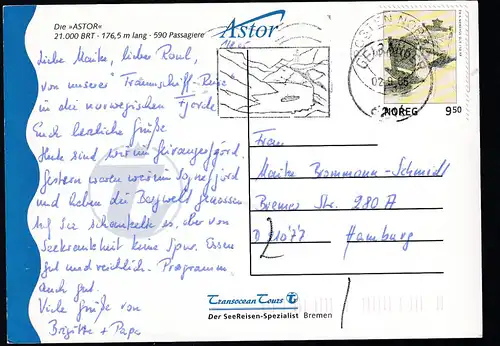 Die »ASTOR«
21.000 BRT · 176,5 m lang · 590 Passagiere
Astor
Liebe Maike, lieber Raoul,
von unserer Traumschiff-Reise
in die norwegischen Fjorde
Euch herzliche Grüße
Heute sind wir im Geirangerfjord.
Gestern waren wir im Sognefjord
und haben die Bergwelt genossen
Auf See schaukelte es, aber von
Seekrankheit keine Spur. Essen
gut und reichlich. Programm
auch gut.
Viele Grüße von
Brigitte + Papa
NOREG 9 50
Frau
Maike Brammann-Schmidt
Bremer Str. 280 A
D 21077 Hamburg
Transocean Tours
Der SeeReisen-Spezialist Bremen